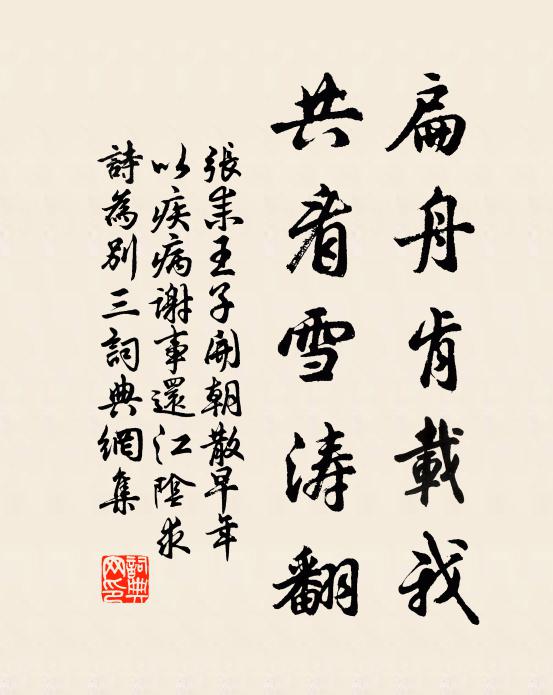 扁舟肯載我
共看雪濤翻
張耒王子開朝散早年
以疾病謝事還江陰求
詩為別三詞典網集
詞典
网印